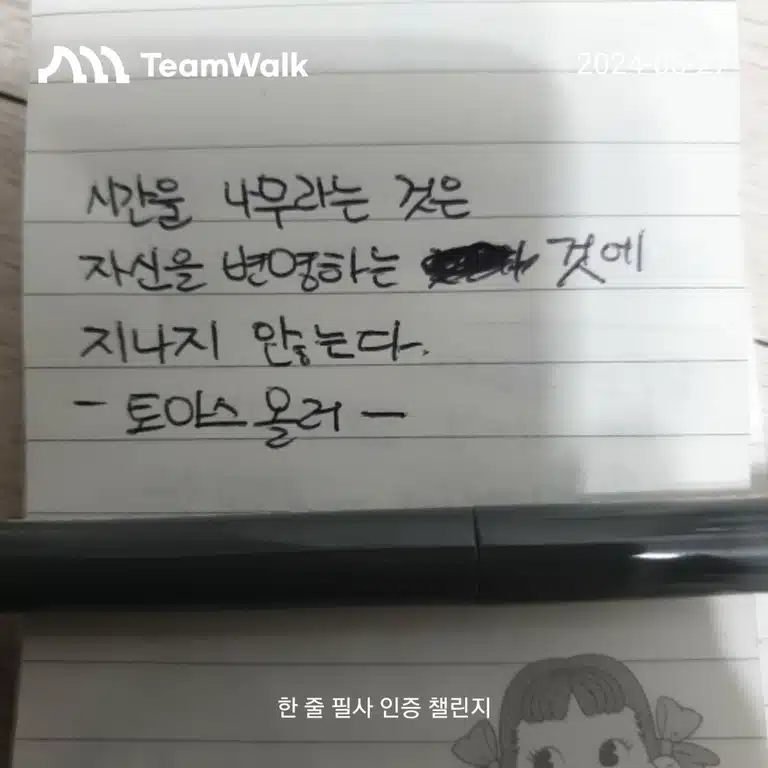 TeamWalk
시간을 나무라는 것은
자신을 변명하는 것에
지나지 않는다.
- 토마스 올러 -
한 줄 필사 인증 챌린지